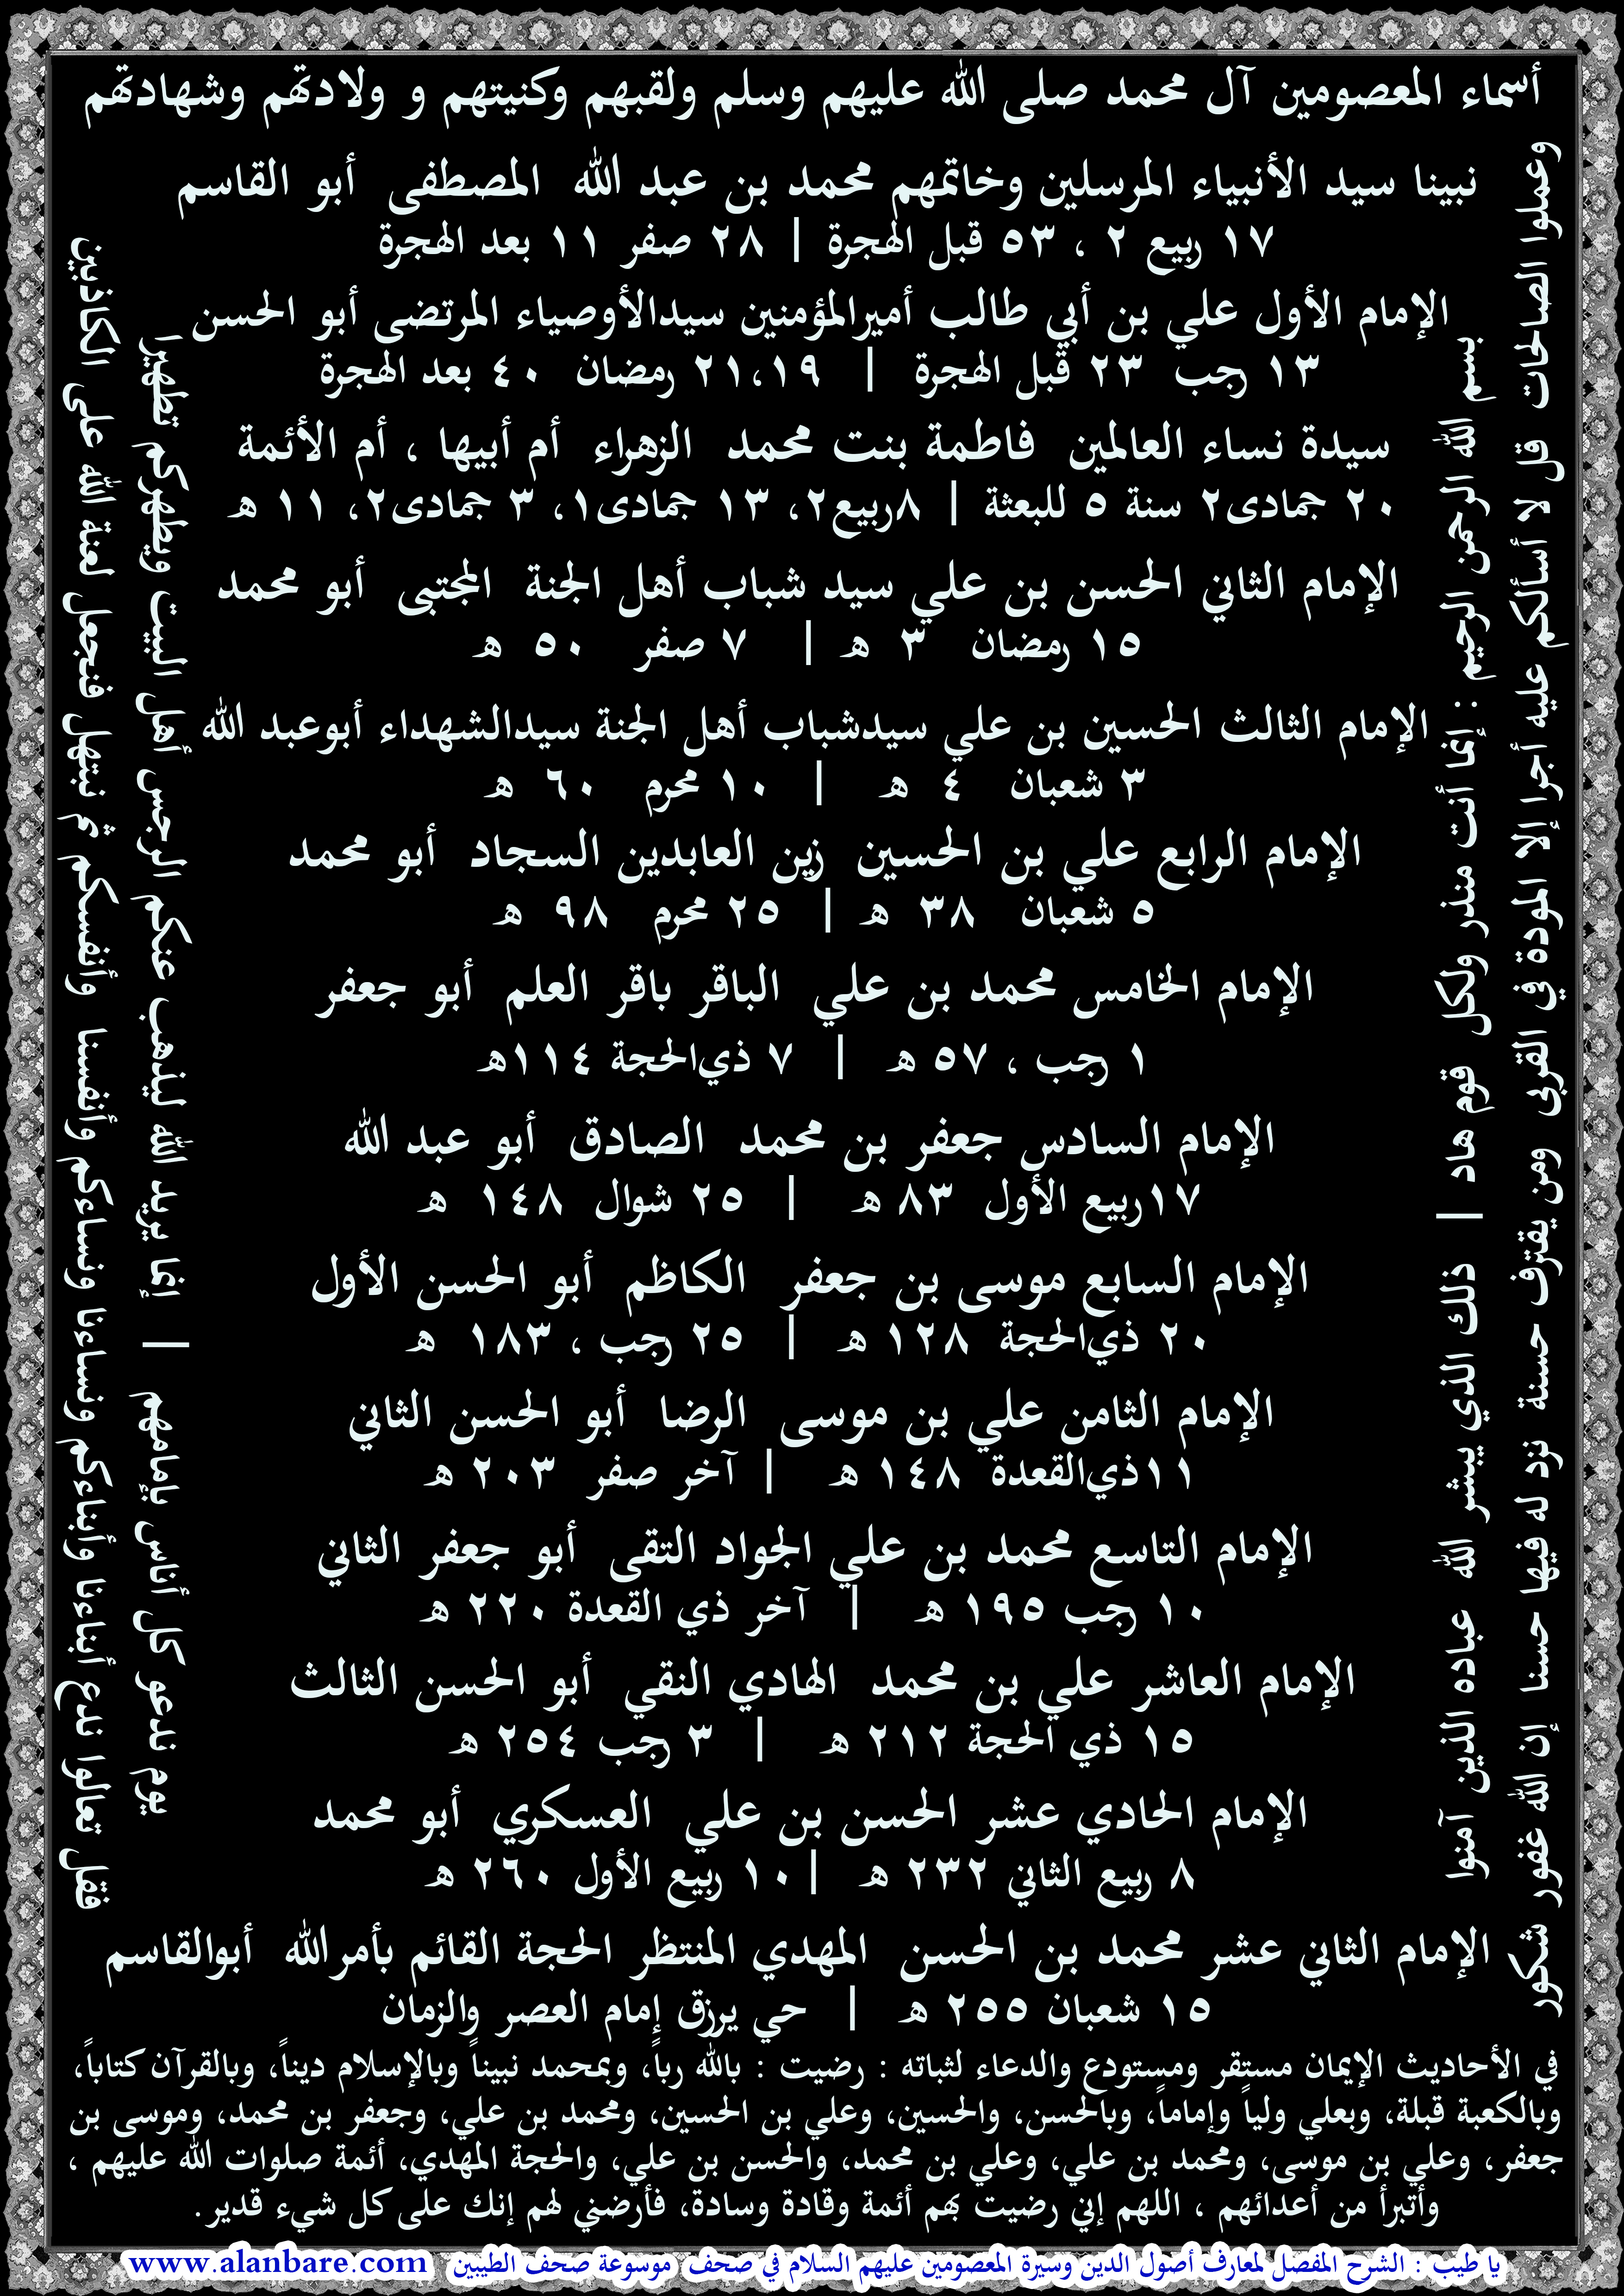 أسماء المعصومين آل محمد صلى الله عليهم وسلم ولقبهم وكنيتهم و ولادتهم وشهادتهم
نبينا سيد الأنبياء المرسلين وخاتمهم محمد بن عبد الله المصطفى أبو القاسم
١٧ ربيع ٢ ، ٥٣ قبل الهجرة | ٢٨ صفر ١١ بعد الهجرة
الإمام الأول علي بن أبي طالب أميرالمؤمنين سيدالأوصياء المرتضى أبو الحسن
١٣ رجب ٢٣ قبل الهجرة | ٢١،١٩ رمضان ٤٠ بعد الهجرة
سيدة نساء العالمين فاطمة بنت محمد الزهراء أم أبيها ، أم الأئمة
٢٠ جمادى٢ سنة ٥ للبعثة | ٨ربيع٢، ١٣ جمادى١، ٣ جمادى٢، ١١ هـ
الإمام الثاني الحسن بن علي سيد شباب أهل الجنة المجتبى أبو محمد
١٥ رمضان ٣ هـ | ٧ صفر ٥٠ هـ
الإمام الثالث الحسين بن علي سيدشباب أهل الجنة سيدالشهداء أبوعبد الله
٣ شعبان ٤ هـ | ١٠ محرم ٦٠ هـ
الإمام الرابع علي بن الحسين زين العابدين السجاد أبو محمد
٥ شعبان ٣٨ هـ | ٢٥ محرم ٩٨ هـ
الإمام الخامس محمد بن علي الباقر باقر العلم أبو جعفر
١ رجب ، ٥٧ هـ | ٧ ذي‌الحجة ١١٤هـ
الإمام السادس جعفر بن محمد الصادق أبو عبد الله
١٧ربيع الأول ٨٣ هـ | ٢٥ شوال ١٤٨ هـ
الإمام السابع موسى بن جعفر الكاظم أبو الحسن الأول
٢٠ ذي‌الحجة ١٢٨ هـ | ٢٥ رجب ، ١٨٣ هـ
الإمام الثامن علي بن موسى الرضا أبو الحسن الثاني
١١ذي‌القعدة ١٤٨ هـ | آخر صفر ٢٠٣ هـ
الإمام التاسع محمد بن علي الجواد التقى أبو جعفر الثاني
١٠ رجب ١٩٥ هـ | آخر ذي القعدة ٢٢٠ هـ
الإمام العاشر علي بن محمد الهادي النقي أبو الحسن الثالث
١٥ ذي الحجة ٢١٢ هـ | ٣ رجب ٢٥٤ هـ
الإمام الحادي عشر الحسن بن علي العسكري أبو محمد
٨ ربيع الثاني ٢٣٢ هـ | ١٠ ربيع الأول ٢٦٠ هـ
الإمام الثاني عشر محمد بن الحسن المهدي المنتظر الحجة القائم بأمرالله أبوالقاسم
١٥ شعبان ٢٥٥ هـ | حي يرزق إمام العصر والزمان
بسم الله الرحمن الرحيم : إنما أنت منذر ولكل قوم هاد | ذلك الذي يبشر الله عباده الذين آمنوا
وعملوا الصالحات قل لا أسألكم عليه أجرا إلا المودة في القربى ومن يقترف حسنة نزد له فيها حسنا إن الله غفور شكور
يوم ندعو كل أناس بإمامهم | إنما يريد الله ليذهب عنكم الرجس أهل البيت ويطهركم تطهيرا
فقل تعالوا ندع أبناءنا وأبناءكم ونساءنا ونساءكم وأنفسنا وأنفسكم ثم نبتهل فنجعل لعنة الله على الكاذبين
في الأحاديث الإيمان مستقر ومستودع والدعاء لثباته : رضيت : بالله رباً، وبمحمد نبيناً وبالإسلام ديناً، وبالقرآن كتاباً،
وبالكعبة قبلة، وبعلي ولياً وإماماً، وبالحسن، والحسين، وعلي بن الحسين، ومحمد بن علي، وجعفر بن محمد، وموسى بن
جعفر، وعلي بن موسى، ومحمد بن علي، وعلي بن محمد، والحسن بن علي، والحجة المهدي، أئمة صلوات الله عليهم ،
وأتبرأ من أعدائهم ، اللهم إني رضيت بهم أئمة وقادة وسادة، فأرضني لهم إنك على كل شيء قدير.
يا طيب : الشرح المفصل لمعارف أصول الدين وسيرة المعصومين عليهم السلام في صحف موسوعة صحف الطيبين www.alanbare.com